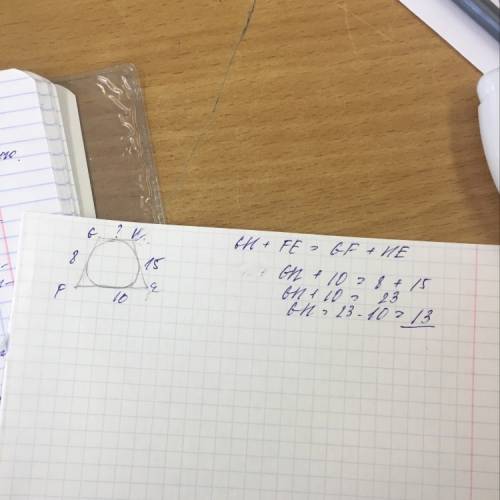 G ? H
8 15
F E
10
GH + FE = GF + HE
GH + 10 = 8 + 15
GH + 10 = 23
GH = 23 - 10 = 13